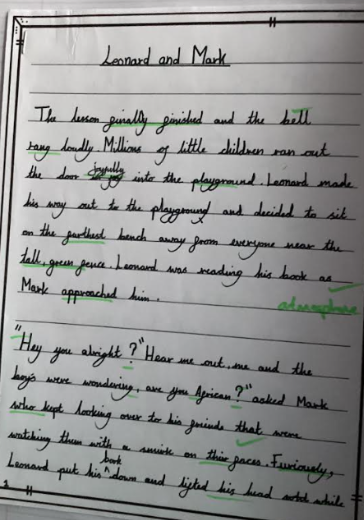 Leonard and Mark
The lesson finally finished and the bell
rang loudly. Millions of little children ran out
joyfully
the door into the playground. Leonard made
his way out to the playground and decided to sit
on the farthest bench away from everyone near the
tall, green fence. Leonard was reading his book as
Mark approached him.
atmosphere
"Hey you alright?" Hear me out, me and the
boys were wondering, are you African?" asked Mark
who kept looking over to his friends that were
watching them with a smirk on their faces. Furiously,
book
Leonard put his down and lifted his head while